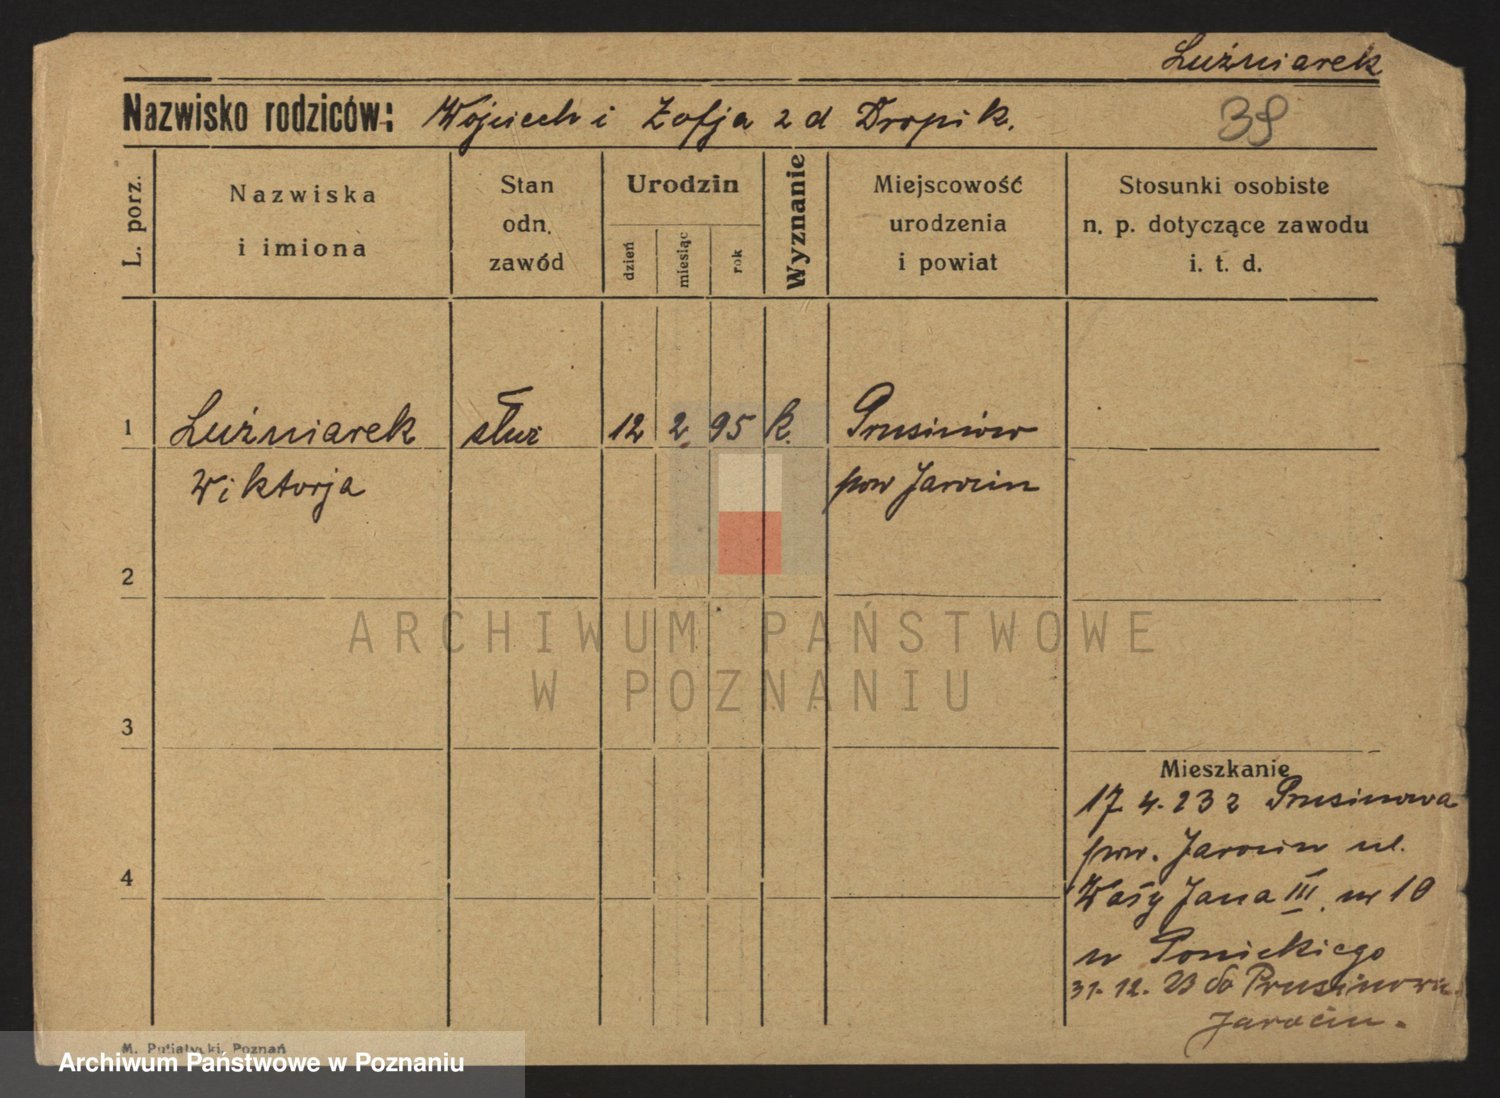 Luźniarek
Nazwisko rodziców: Wojciech i Zofja z d Dropik.
38
L. porz.
Nazwiska
i imiona
Stan
odn.
zawód
Urodzin
dzień
miesiąc
rok
Wyznanie
Miejscowość
urodzenia
i powiat
Stosunki osobiste
n. p. dotyczące zawodu
i. t. d.
1 Luźniarek służ 12 2 95 k. Prusinów
Wiktorja pow Jarocin
2
ARCHIWUM PAŃSTWOWE
W POZNANIU
3
Mieszkanie
17 4. 23 z Prusinowa
pow. Jarocin ul.
4
Wały Jana III. nr 10
u Ponieckiego
31. 12. 23 do Prusinowa
Jarocin.
M. Putiatycki, Poznań
Archiwum Państwowe w Poznaniu